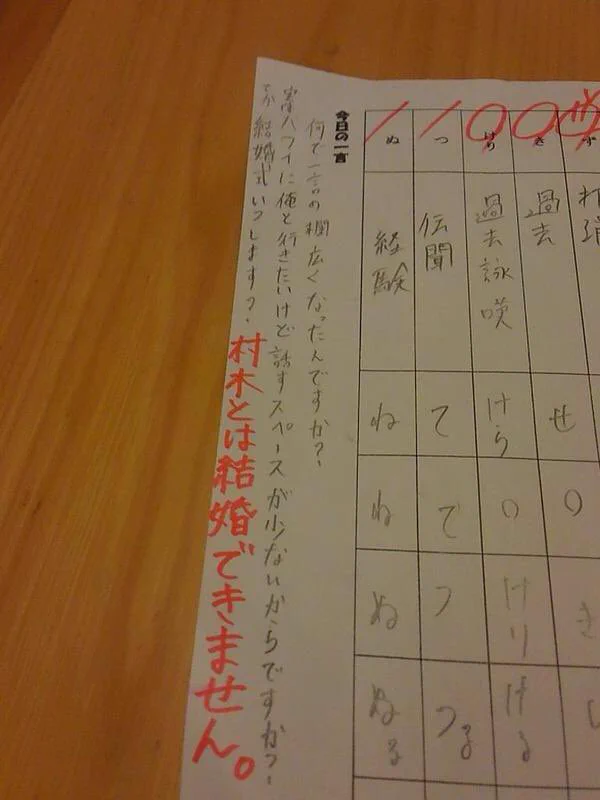 ず
き 過去 せ ○ き
けり 過去詠嘆 けら ○ けり ける
つ 伝聞 て で つ つる
ぬ 経験 ね ね ぬ ぬる
今日の一言
何で一言の欄広くなったんですか?
ハワイに俺と行きたいけど話すスペースが少ないからですか?
てか結婚式いつします?
村木とは結婚できません。